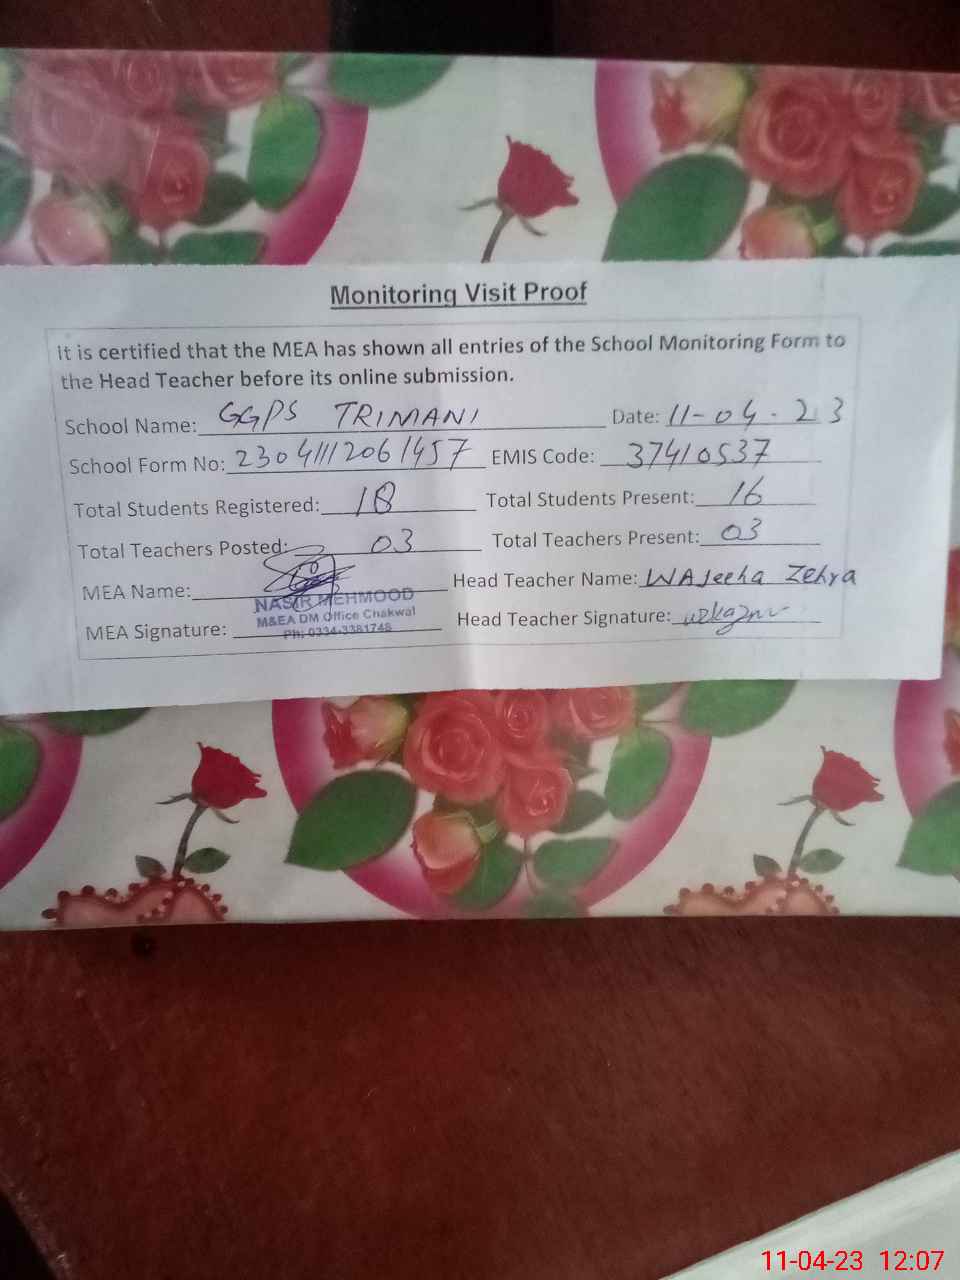 Monitoring Visit Proof
It is certified that the MEA has shown all entries of the School Monitoring Form to
the Head Teacher before its online submission.
School Name: GGPS TRIMANI Date: 11-04-23
School Form No: 23041112061457 EMIS Code: 37410537
Total Students Registered: 18 Total Students Present: 16
Total Teachers Posted: 03 Total Teachers Present: 03
MEA Name: Head Teacher Name: WAJeeha Zehra
NASIR MEHMOOD
M&EA DM Office Chakwal
Ph: 0334-3381748
MEA Signature: Head Teacher Signature:
11-04-23 12:07